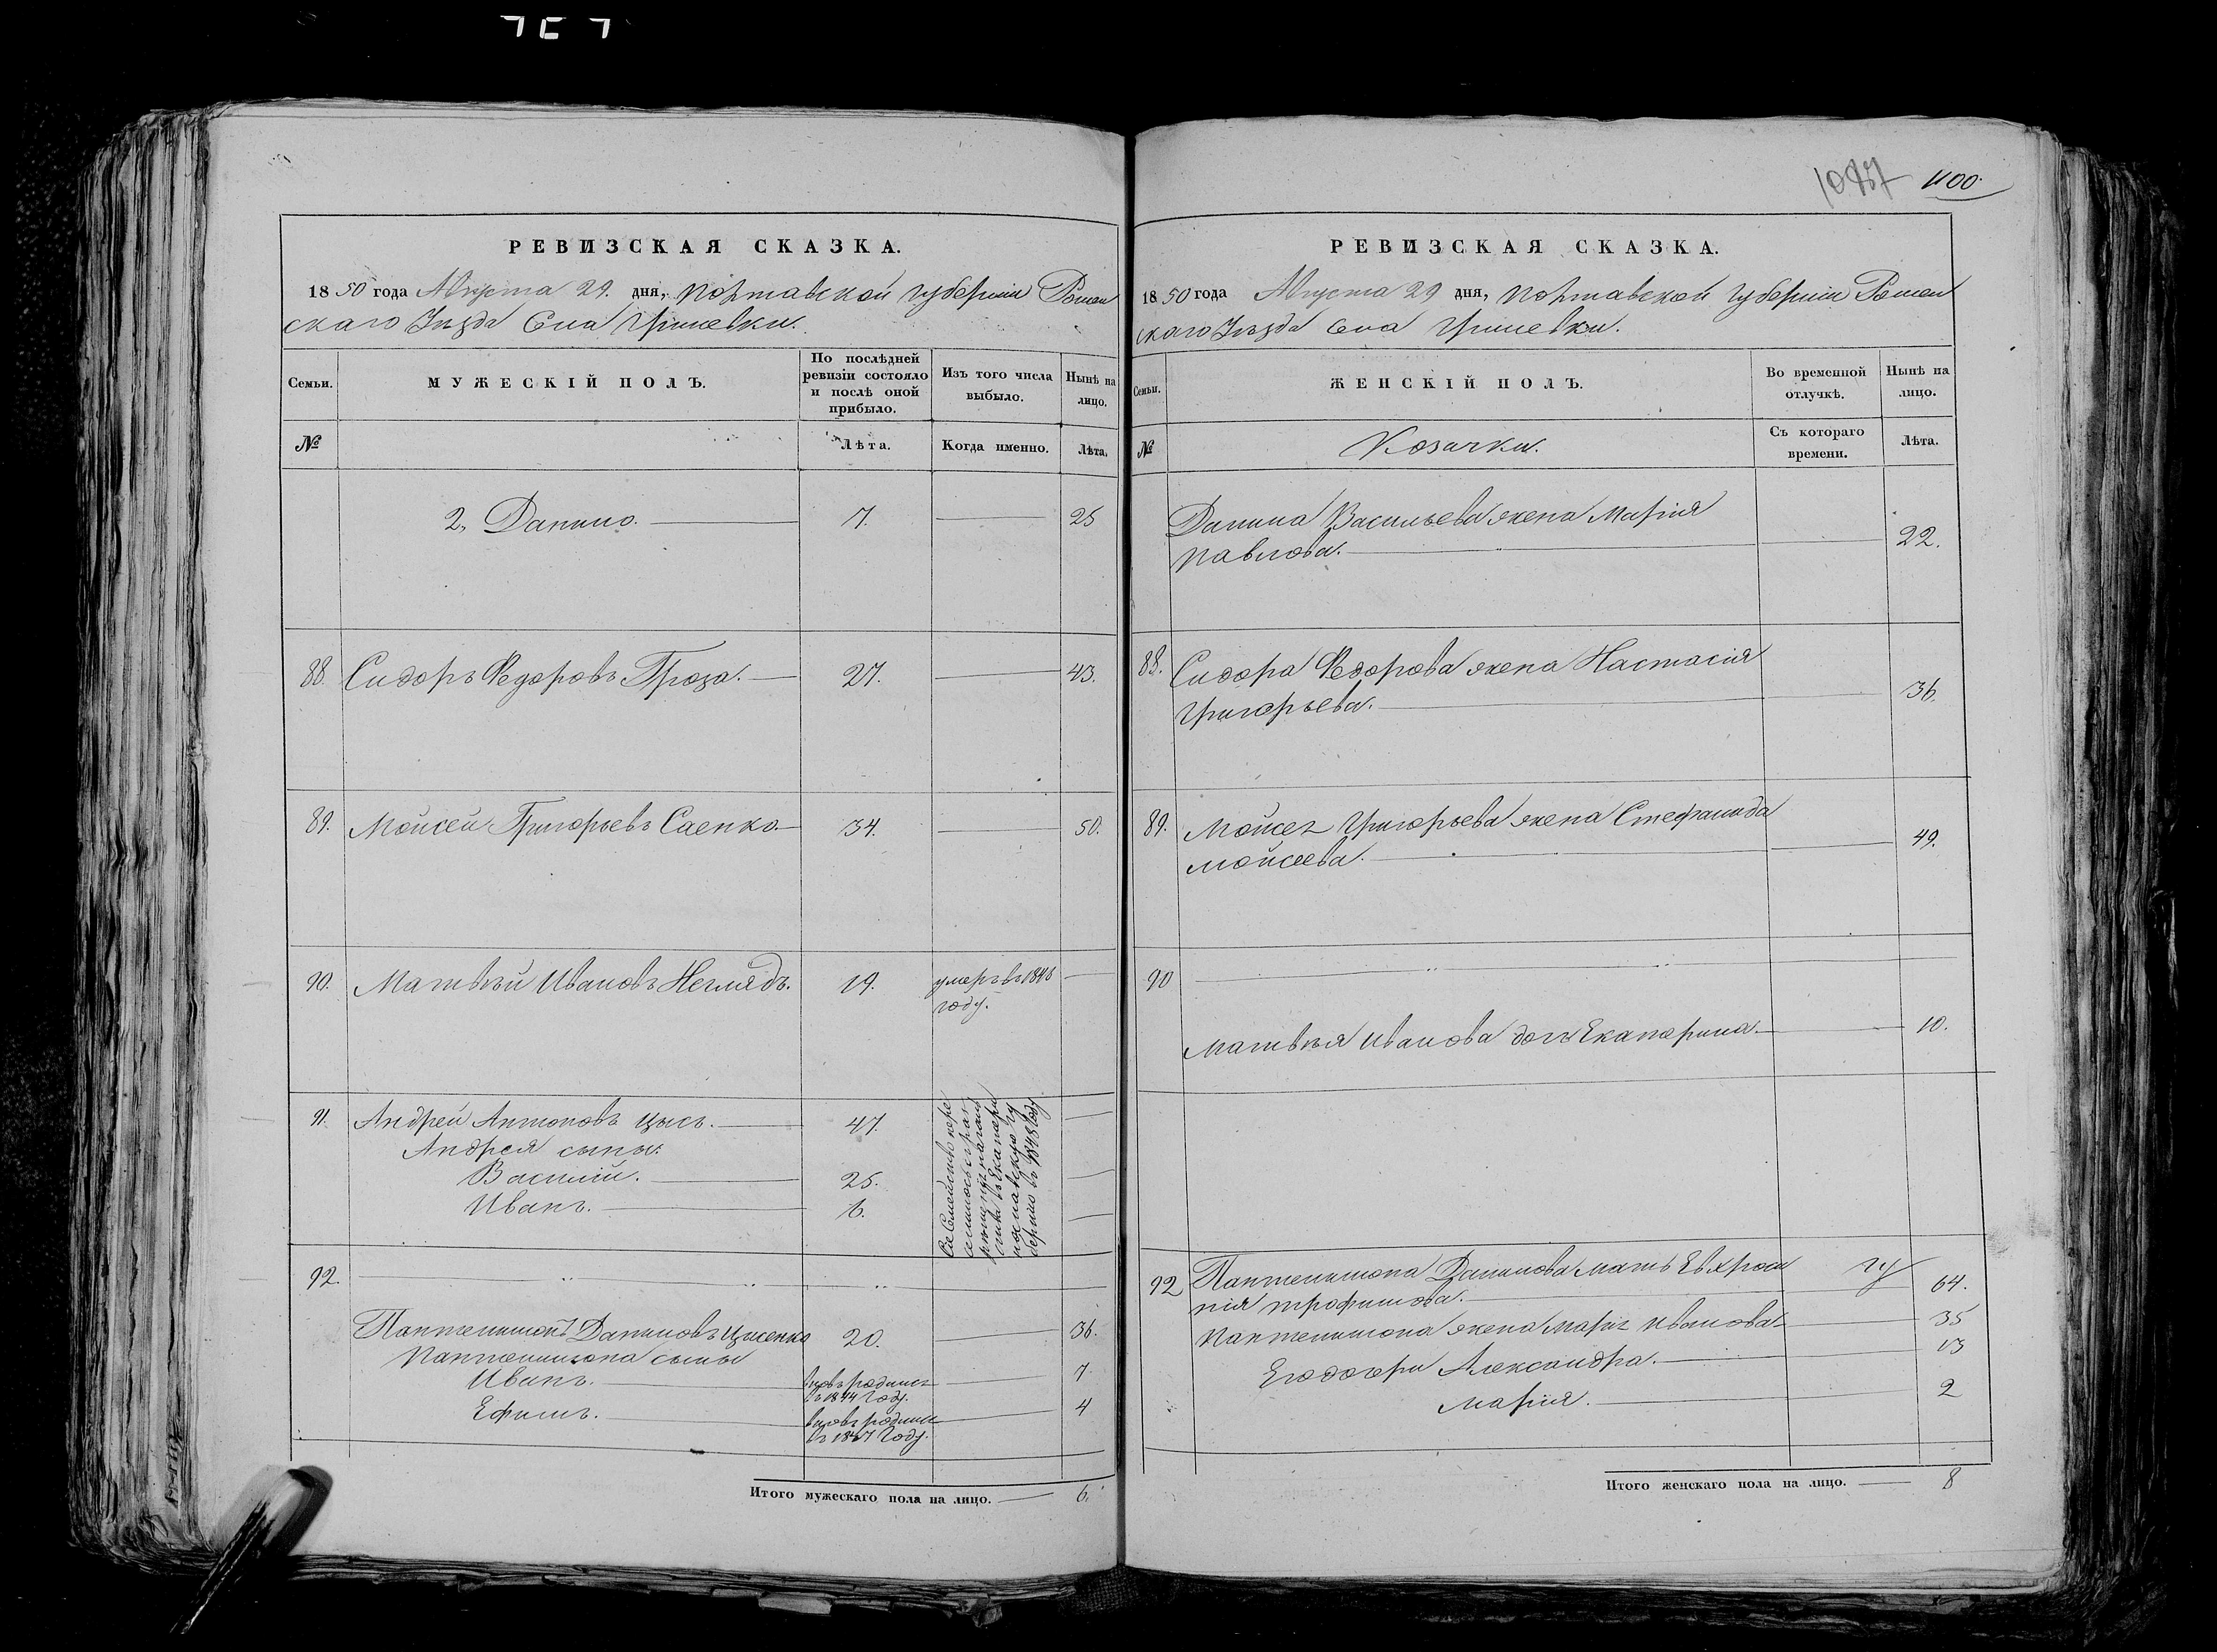 1100.
РЕВИЗСКАЯ СКАЗКА.
1850 года Августа 29. дня, Полтавской губернии Ромен
скаго Уѣзда Села Гришевки.
Семьи.
МУЖЕСКІЙ ПОЛЪ.
По послѣдней
ревизіи состояло
и послѣ оной
прибыло.
Изъ того числа
выбыло.
Нынѣ на
лицо.
№
Лѣта.
Когда именно.
Лѣта.
2, Данило. 7. 25
88. Сидоръ Федоровъ Гроза. 27. 43.
89. Мойсей Григорьевъ Саенко. 34. 50.
90. Матвѣй Ивановъ Неглядъ. 19. умеръ въ 1846
году.
91. Андрей Антоновъ Цысь. 47.
Андрея сыны:
Василій. 25.
Иванъ. 6.
Сіе Семейство пере
92.
Пантелимонъ Даниловъ Цисенко 20. 36.
Пантелимона сыны
Иванъ. вновь родился 7
въ 1844 году.
Ефимъ. вновь родился 4
въ 1847 году.
Итого мужескаго пола на лицо. 6.
РЕВИЗСКАЯ СКАЗКА.
1850 года Августа 29 дня, Полтавской губернии Ромен
скаго Уѣзда Села Гришевки.
Семьи.
ЖЕНСКІЙ ПОЛЪ.
Во временной
отлучкѣ.
Нынѣ на
лицо.
№
Козачки.
Съ котораго
времени.
Лѣта.
Данила Васильева жена Марія
Павлова. 22.
88. Сидора Федорова жена Настасія
Григорьева. 36.
89. Мойсея Григорьева жена Стефанида
Мойсеева. 49.
90
Матвѣя Иванова дочь Екатерина. 10.
92 Пантелимона Данилова мать Евхроси
нія Трофимова. 64.
Пантелимона жена Марія Иванова 35
Его дочери Александра. 13
Марія. 2
Итого женскаго пола на лицо. 8